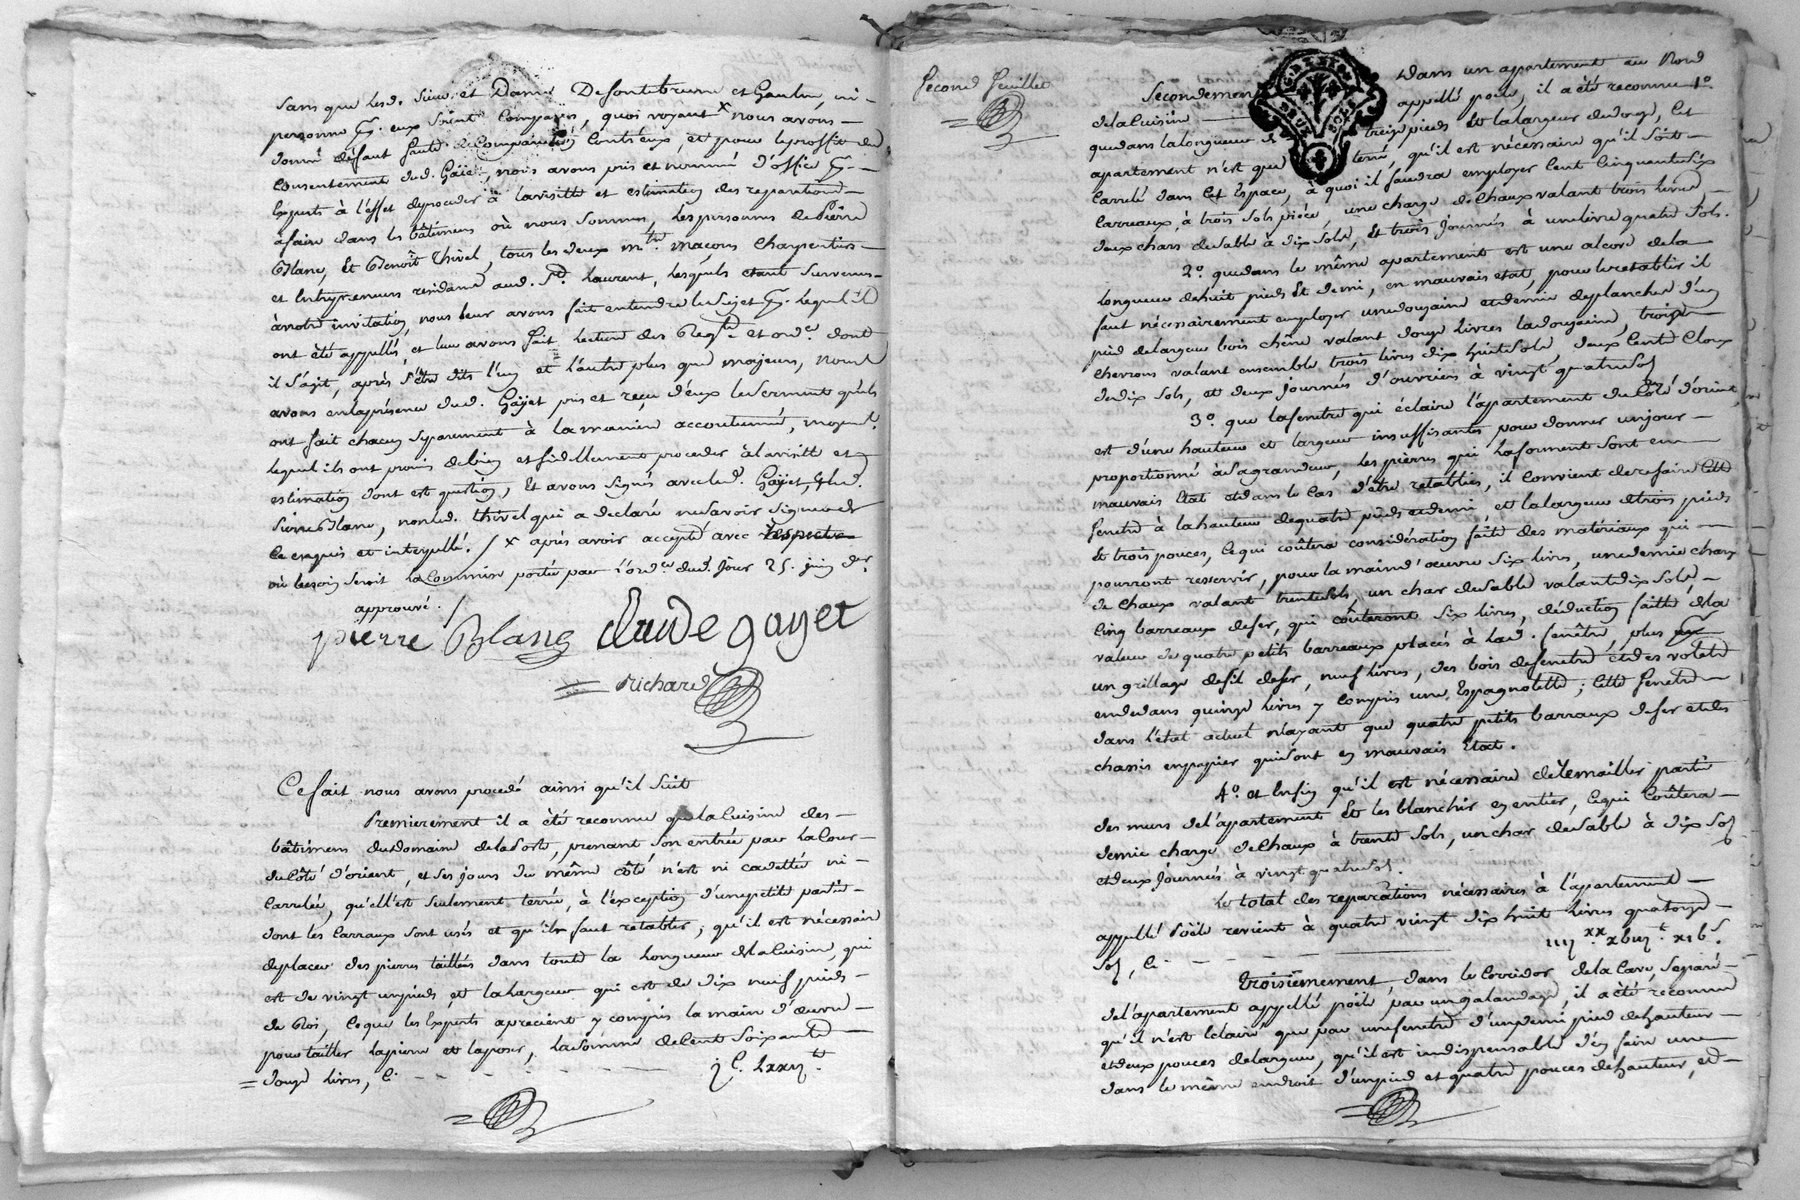 sans que lesd. Sieur et Dame Desontebrune et Gaulne, ni
personne pr. eux soient comparus, quoi voyant x nous avons
donné défaut faute de comparution contr'eux, et pour le proffit du
consentement dud. Gayet, nous avons pris et nommé d'office pr.
Experts à l'effet de proceder à la visitte et estimation des reparations
à faire dans les bâtimens où nous sommes, les personnes de Pierre
Blanc, Et Benoît Thivel, tous les deux mtres. maçons charpentiers
et Entrepreneurs residants aud. St. Laurent, lesquels étant survenus
à notre invitation, nous leur avons fait entendre le sujet pr. lequel ils
ont été appellés, et leur avons fait lecture des Reqte. et ordce. dont
il s'agit, après s'être dits l'un et l'autre plus que majeurs, nous
avons en la présence dud. Gayet pris et reçu d'eux le serment qu'ils
ont fait chacun séparement à la maniere accoutumée, moyent.
lequel ils ont promis de bien et fidellement proceder à la visitte et
estimation dont est question, Et avons signés avec led. Gayet, & led.
Pierre Blanc, non led. Thivel qui a declaré ne savoir signer de
ce enquis et interpellé. / x après avoir accepté avec respect
où besoin seroit la commission portée par l'ordce. dud. jour 25. juin der.
approuvé.
pierre Blanc claude gayet
Richard
Ce fait nous avons procedé ainsi qu'il suit
Premierement il a été reconnu que la cuisine des
bâtimens du domaine de la Forte, prenant son entrée par la cour
du côté d'orient, et ses jours du même côté n'est ni cadettée ni
carrelée, qu'elle est seulement terrée, à l'exception d'une petite partie
dont les carraux sont usés et qu'il faut retablir; qu'il est nécessaire
de placer des pierres taillées dans toute la longueur de la cuisine, qui
est de vingt un pieds, et la largeur qui est de dix neuf pieds
de Roi, ce que les Experts aprecient y compris la main d'œuvre
pour tailler la pierre et la poser, la somme de cent soixante
douze livres, ci jc. lxxij lt.
Second Feuillet
Secondement Dans un appartement au Nord
de la cuisine appellé poile, il a été reconnu 1°
que dans la longueur de treize pieds et la largeur de douze, Cet
apartement n'est que terré, qu'il est nécessaire qu'il soit
carrelé dans cet Espace, à quoi il faudra employer cent cinquante six
carreaux, à trois sols piéce, une charge de chaux valant trois livres
deux chars de sable à dix sols, Et trois journées à une livre quatre sols.
2°. que dans le même apartement est une alcove de la
longueur de huit pieds Et demi, en mauvais état, pour le retablir il
faut nécessairement employer une douzaine et demie de planches d'un
pied de largeur bois chêne valant douze livres la douzaine, trois
chevrons valant ensemble trois livres dix huit sols, deux cents cloux
de dix sols, et deux journées d'ouvriers à vingt quatre sols
3°. que la fenetre qui éclaire l'apartement du Côté d'orient
est d'une hauteur et largeur insuffisantes pour donner un jour
proportionné à sa grandeur, Les pierres qui la forment sont en
mauvais Etat et dans le cas d'être retablies, il convient de refaire cette
fenetre à la hauteur de quatre pieds et demi et la largeur de trois pieds
Et trois pouces, ce qui coûtera considération faite des matériaux qui
pourront resservir, pour la maind'œuvre six livres, une demie charge
de chaux valant trente sols, un char de sable valant dix sols
cinq barreaux de fer, qui coûteront six livres, déduction faite de la
valeur de quatre petits barreaux placés à lad. fenêtre, plus
un grillage de fil de fer, neuf livres, des bois de fenetre et des volets
en dedans quinze livres y compris une Espagnolette; Cette fenetre
dans l'état actuel n'ayant que quatre petits barraux de fer et des
chassis en papier qui sont en mauvais Etat.
4°. et Enfin qu'il est nécessaire de remailler partie
des murs de l'apartement Et les blanchir en entier, ce qui coûtera
demie charge de chaux à trente sols, un char de sable à dix sols
et deux journées à vingt quatre sols.
Le total des reparations nécessaires à l'apartement
appellé Poile revient à quatre vingt dix huit livres quatorze
sols, ci iiijxx. xviij lt. xiv s.
Troisièmement, dans le corridor de la cave, separé
de l'apartement appellé poile par un galandage, il a été reconnu
qu'il n'est Eclairé que par une fenetre d'un demi pied de hauteur
et deux pouces de largeur, qu'il est indispensable d'en faire une
dans le même endroit d'un pied et quatre pouces de hauteur, et